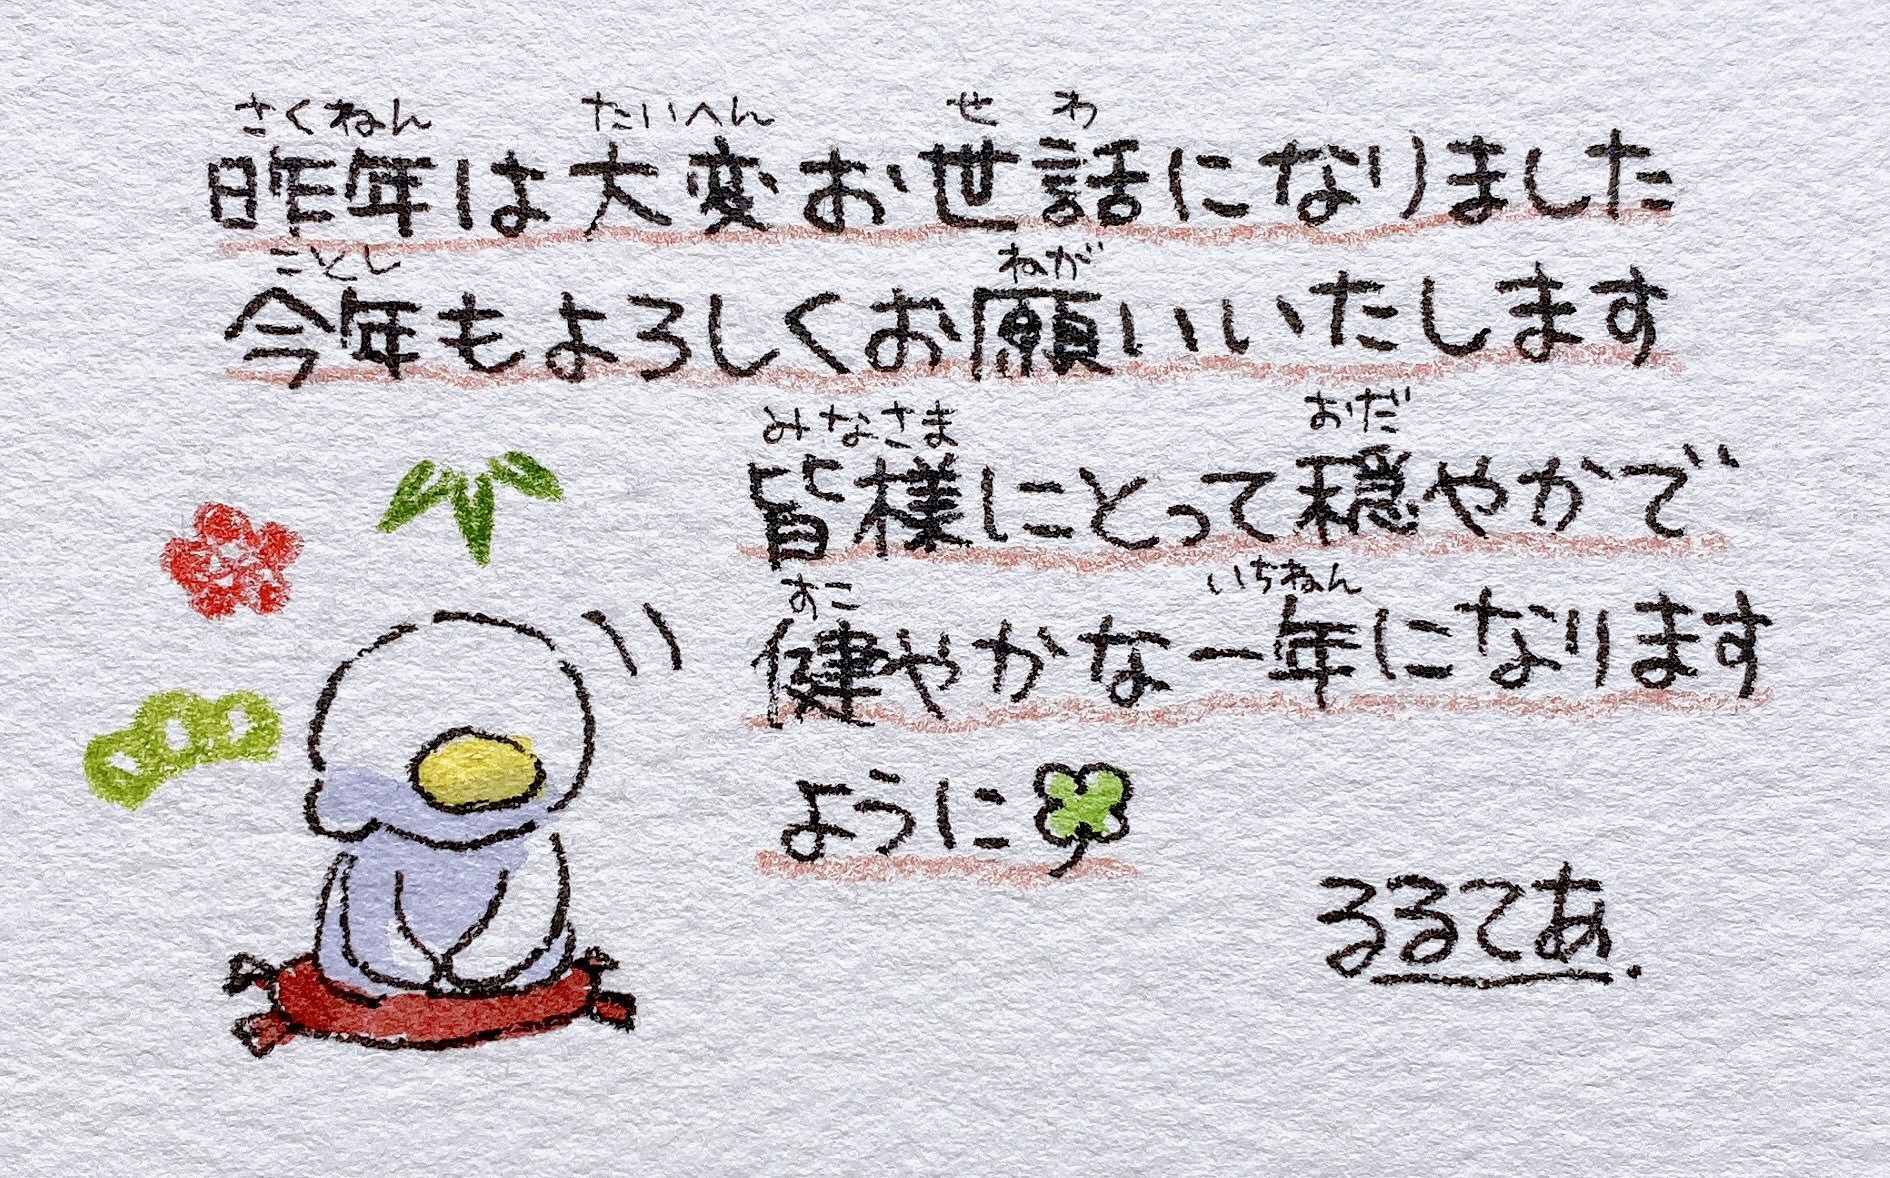 さくねん たいへん せわ
昨年は大変お世話になりました
ことし ねが
今年もよろしくお願いいたします
みなさま おだ
皆様にとって穏やかで
すこ いちねん
健やかな一年になります
ように
るるてあ.